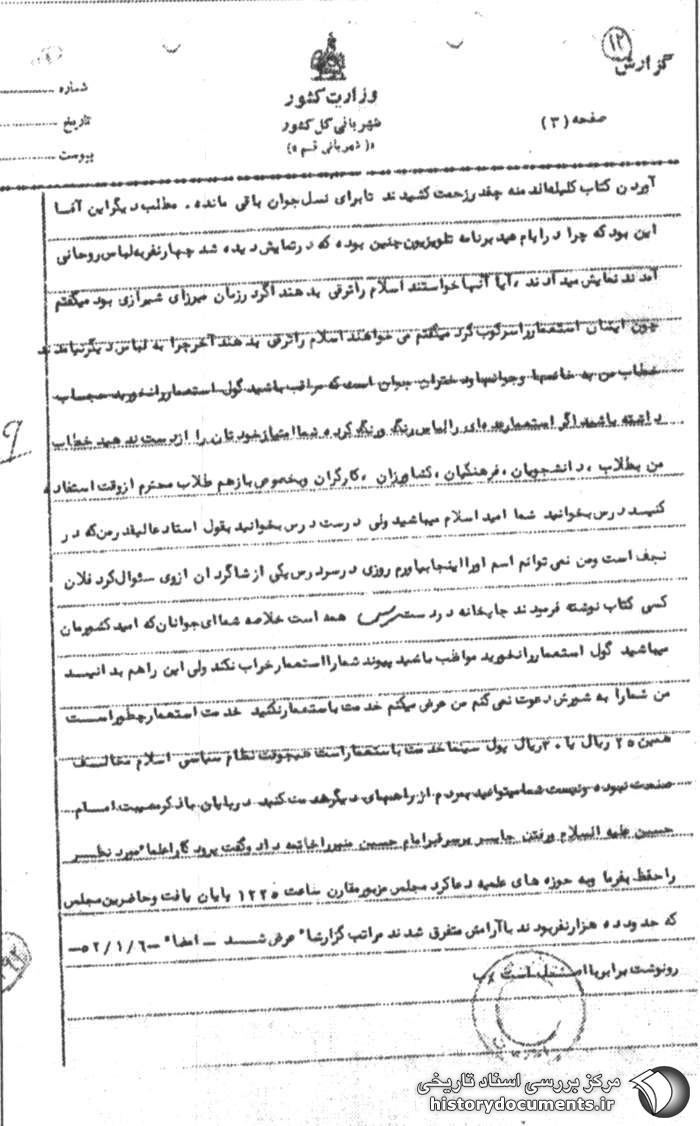 ۱۲
گزارش
وزارت کشور
شهربانی کل کشور
«(شهربانی قم)»
صفحه (۳)
شماره
تاریخ
پیوست
آوردن کتاب کلیله‌اند منه چقدر زحمت کشیدند تا برای نسل جوان باقی مانده . مطلب دیگر این آقا
این بود که چرا در ایام عید برنامه تلویزیون چنین بوده که در نمایش دیده شد چهار نفر به لباس روحانی
آمدند نمایش میدادند ، آیا آنها خواستند اسلام را ترقی بدهند اگر در زمان میرزای شیرازی بود میگفتم
چون ایشان استعمار را سرکوب کرد میگفتم می خواهند اسلام را ترقی بدهند آخر چرا به لباس دیگر نیامدند
خطاب من به خانمها و جوانها و دختران جوان است که مراقب باشید گول استعمار را نخورید حجاب
داشته باشید اگر استعمار عده‌ای را لباس رنگ ورنگ کرده شما امتیاز خودتان را از دست ندهید خطاب
من بطلاب ، دانشجویان ، فرهنگیان ، کشاورزان ، کارگران و بخصوص باز هم طلاب محترم از وقت استفاده
کنید درس بخوانید شما امید اسلام میباشید ولی درست درس بخوانید بقول استاد عالیقدر من که در
نجف است و من نمی توانم اسم او را اینجا بیاورم روزی در سر درس یکی از شاگردان از وی سئوال کرد فلان
کسی کتاب نوشته فرمودند چاپخانه در دسترس همه است خلاصه شما ای جوانان که امید کشورمان
میباشید گول استعمار را نخورید مواظب باشید پیوند شما را استعمار خراب نکند ولی این را هم بدانید
من شما را به شورش دعوت نمی کنم من عرض میکنم خدمت باستعمار نکنید خدمت استعمار چطور است
همین ۲۵ ریال یا ۳۰ ریال پول سینما خدمت باستعمار است هیچوقت نظام سیاسی اسلام مخالف
صنعت نبوده و نیست شما میتوانید بمردم از راههای دیگر خدمت کنید در پایان با ذکر مصیبت امام
حسین علیه السلام و رفتن جابر بر سر قبر امام حسین منبر را خاتمه داد و گفت پروردگارا علماء مورد نظر
را حفظ بفرما و به حوزه های علمیه دعا کرد مجلس مزبور مقارن ساعت ۱۲۲۵ پایان یافت و حاضرین مجلس
که حدود ده هزار نفر بودند با آرامش متفرق شدند مراتب گزارشاً عرض شد – امضاء – ۵۲/۱/۶
رونوشت برابر با اصل است
مرکز بررسی اسناد تاریخی
historydocuments.ir